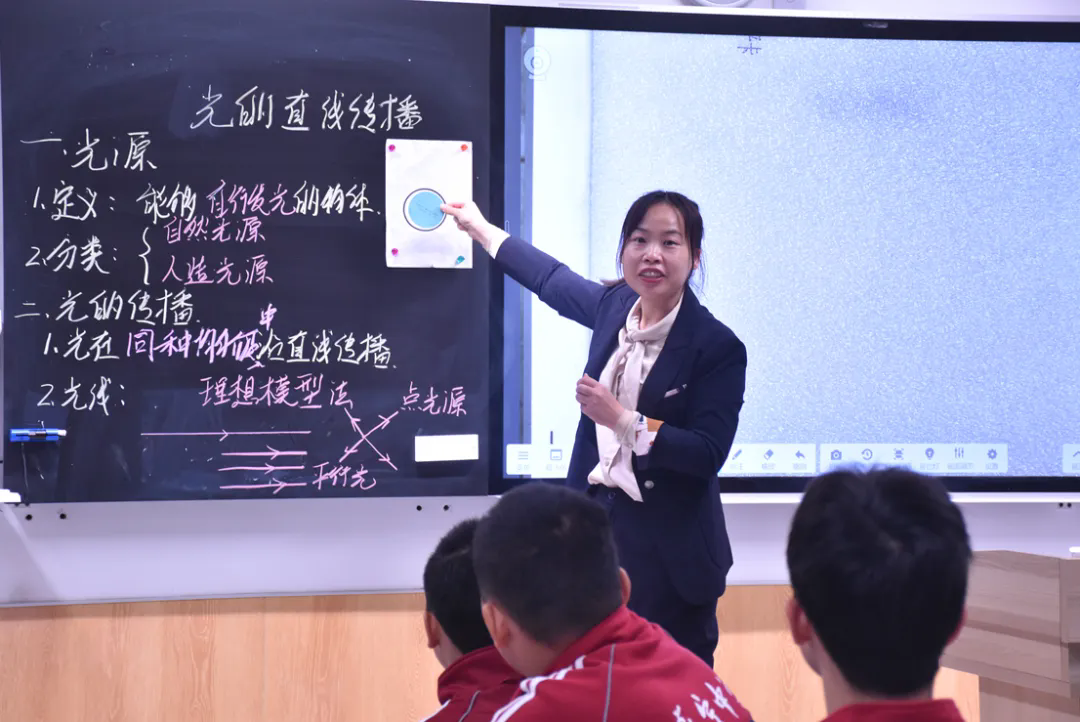 光的直线传播
一、光源
1.定义：能够自行发光的物体.
2.分类：{自然光源
人造光源
二、光的传播.
1.光在同种均匀介质中沿直线传播.
2.光线：理想模型法
点光源
平行光